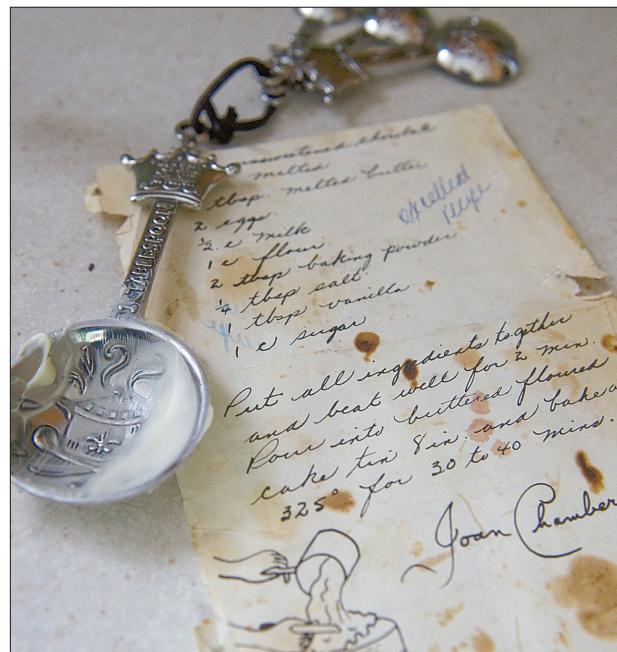 unsweetened
melted
tbsp. melted butter
2 eggs
½ c milk
1 c flour
2 tbsp baking powder
¼ tbsp salt
1 tbsp vanilla
1 c sugar
excellent
recipe
Put all ingredients together
and beat well for 2 min.
Pour into buttered floured
cake tin 8 in. and bake
325° for 30 to 40 mins.
Joan Chamber
TABLESPOON